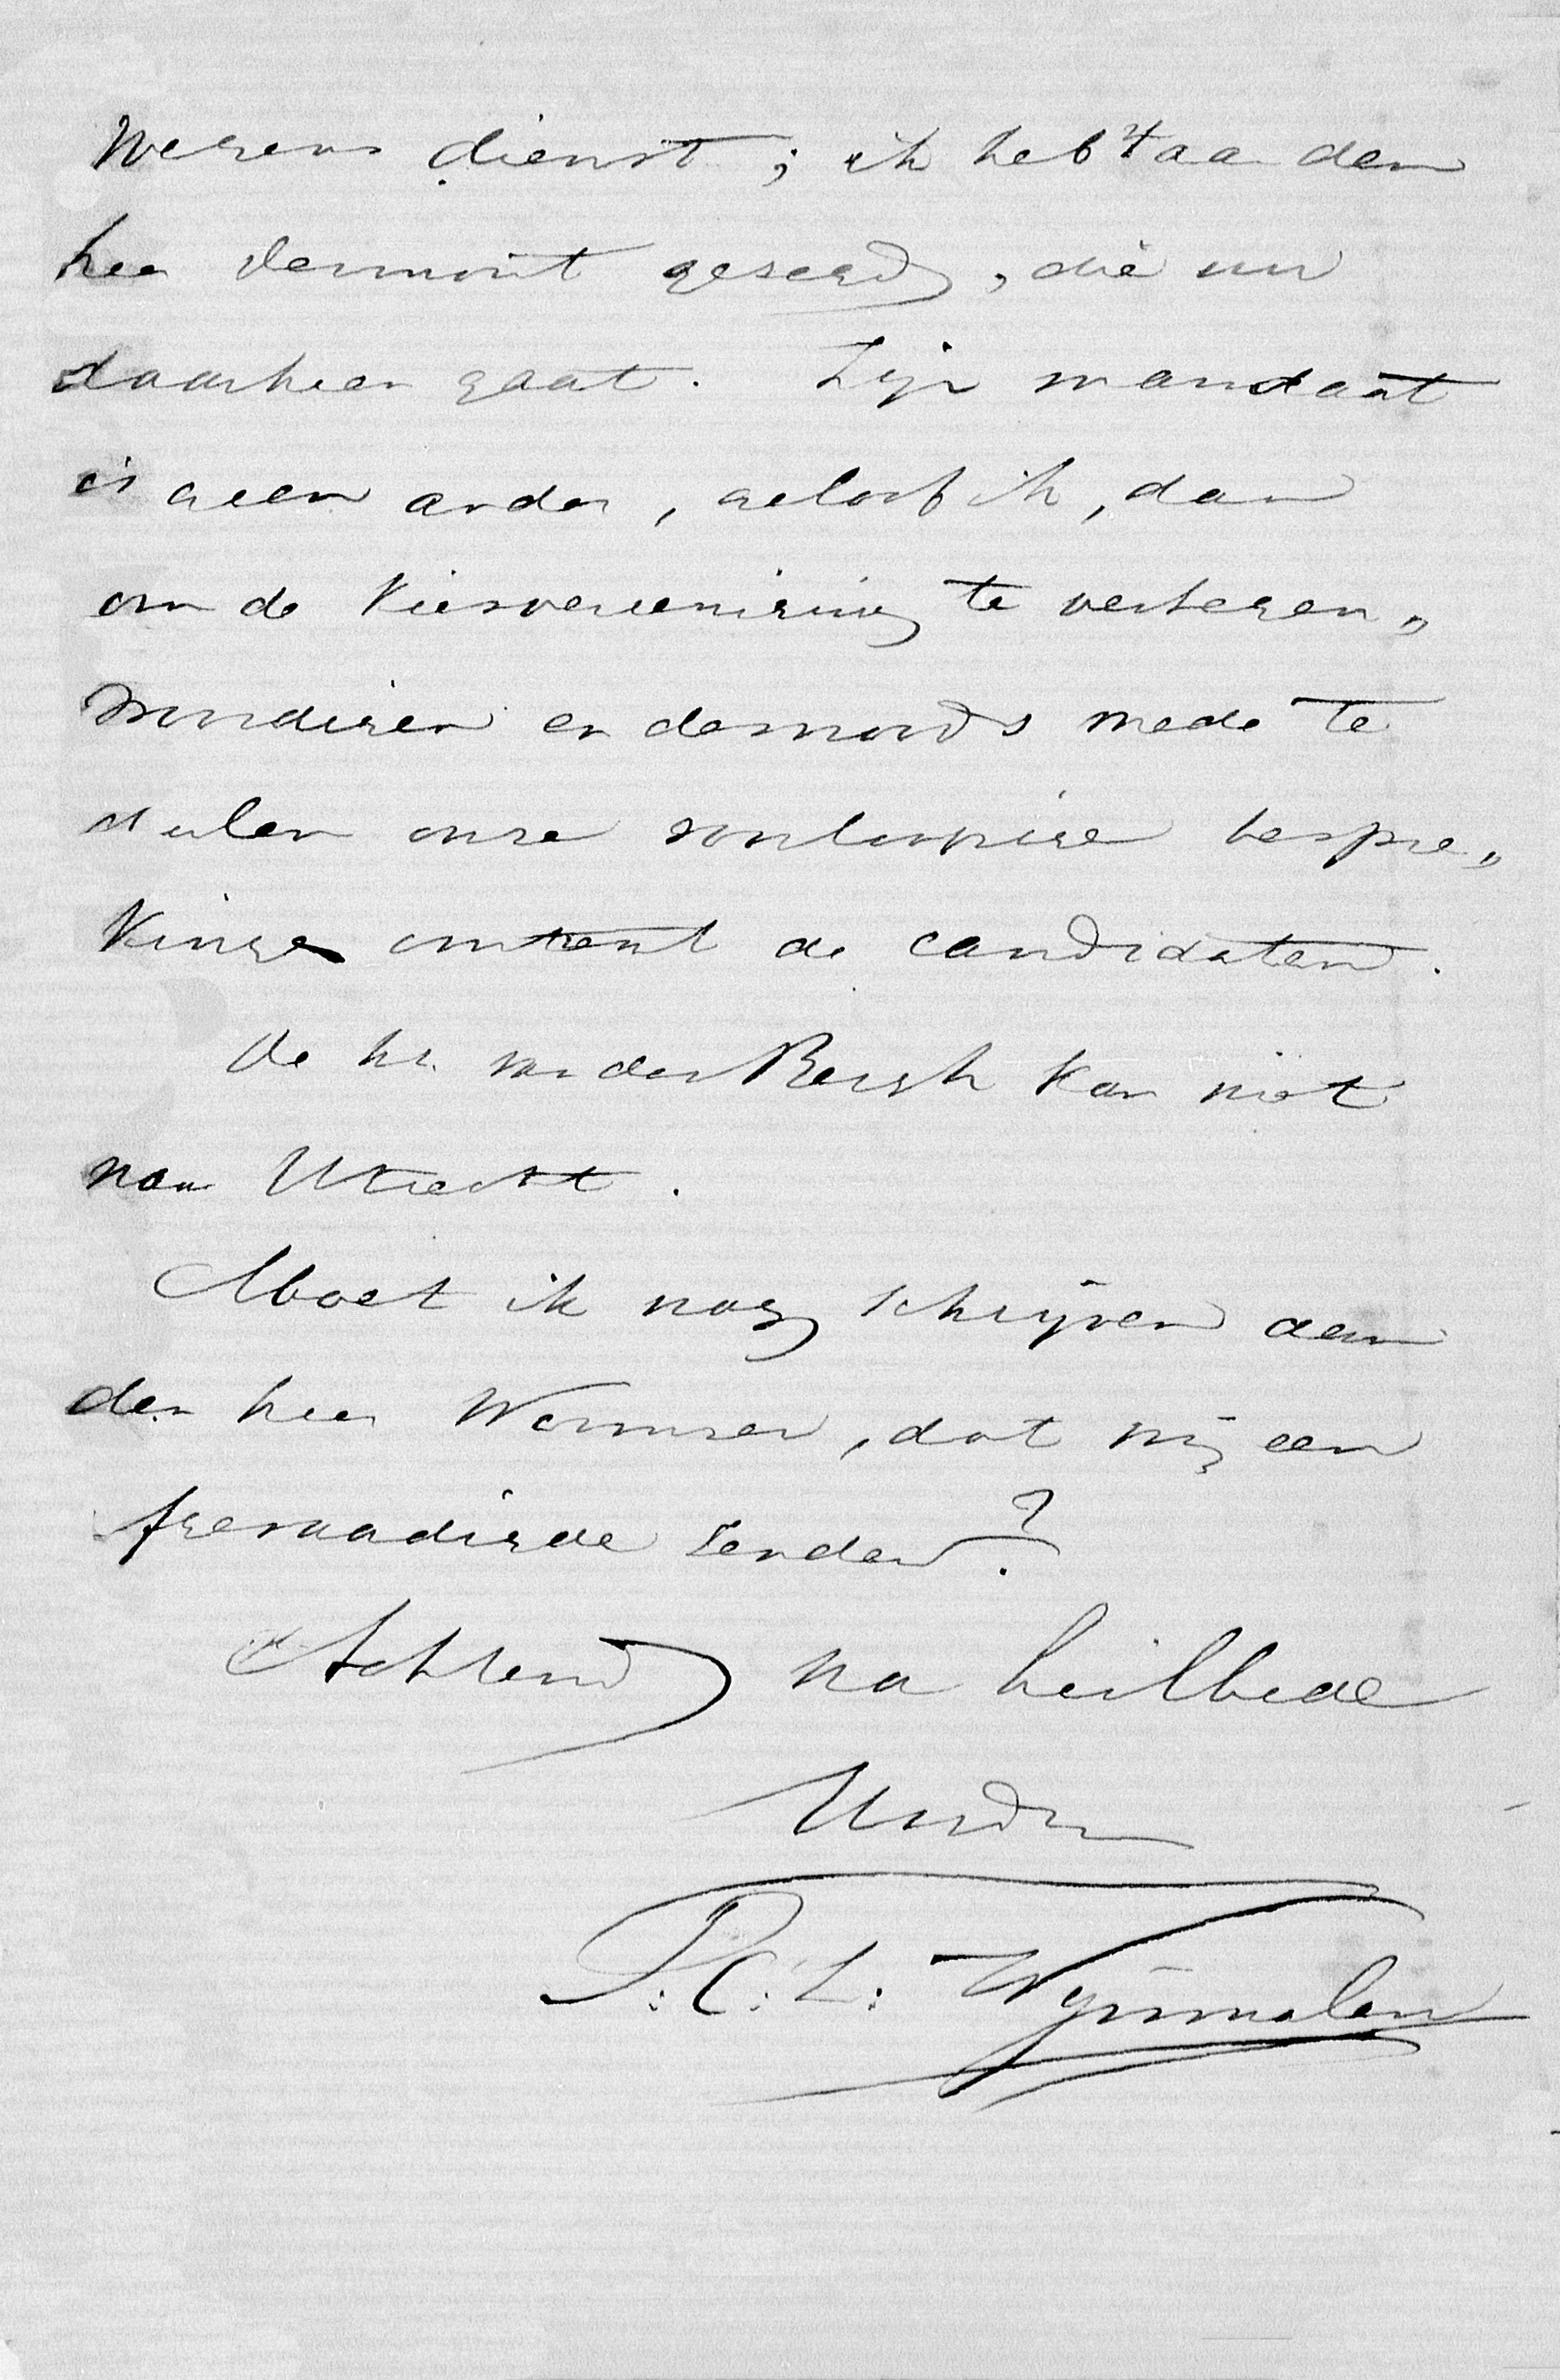 wegens dienst; ik heb 't aan den
heer Vermont gezegd, die nu
daarheen gaat. Zijn mandaat
is geen ander, geloof ik, dan
om de Kiesvereeniging te vertegen„
woordigen en desnoods mede te
deelen onze voorloopige bespre„
kingen omtrent de candidaten.
De hr. van den Bergh kan niet
naar Utrecht.
Moet ik nog schrijven aan
den heer Wormser, dat wij een
afgevaardigde zenden?
Achtend, na heilbede
Uwdn
P. C. L. Wijnmalen